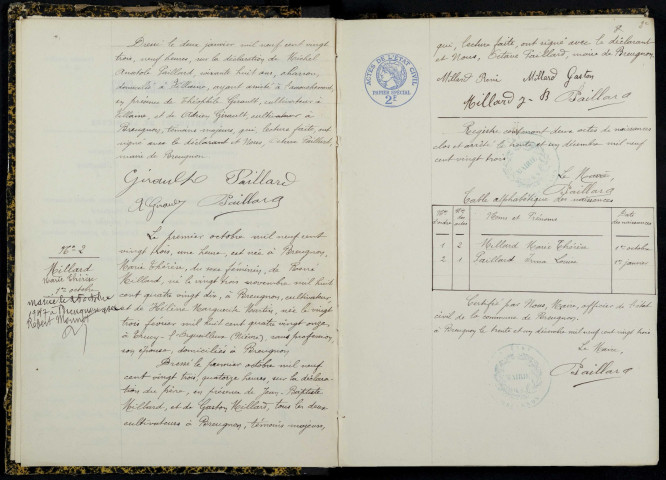 Dressé le deux janvier mil neuf cent vingt
trois, neuf heures, sur la déclaration de Michel
Anatole Paillard, soixante huit ans,
domicilié à Villaine, ayant assisté à l'accouchement,
en présence de Théophile Girault, cultivateur à
Villaine, et de Girault, cultivateur à
Breugnon, témoins majeurs, qui, lecture faite, ont
signé avec le déclarant et Nous, Paillard,
maire de Breugnon.
Girault Paillard
A Girault Paillard
N° 2
Millard
Marie Thérèse
1er octobre
mariée le octobre
1947 à
Robert
Le premier octobre mil neuf cent
vingt trois, une heure, est née à Breugnon,
Marie Thérèse, du sexe féminin, de René
Millard, né le vingt trois novembre mil huit
cent quatre vingt dix, à Breugnon, cultivateur,
et de Hélène Marguerite, née le vingt
trois février mil huit cent quatre vingt onze,
à Trucy-l'Orgueilleux (Nièvre) sans profession,
son épouse, domiciliés à Breugnon.
Dressé le premier octobre mil neuf
cent vingt trois, quatorze heures, sur la déclara-
tion du père, en présence de Jean-Baptiste
Millard, et de Gaston Millard, tous les deux
cultivateurs à Breugnon, témoins majeurs,
ACTES DE L'ETAT CIVIL
PAPIER SPÉCIAL
2F
qui, lecture faite, ont signé avec le déclarant
et Nous, Paillard, maire de Breugnon.
Millard René Millard Gaston
Millard J-B Paillard
Registre contenant deux actes de naissances
clos et arrêté le trente et un décembre mil neuf
cent vingt trois.
Le Maire,
Paillard
Table alphabétique des naissances
Nos d'ordre Nos des actes Noms et Prénoms Date des naissances
1 2 Millard Marie Thérèse 1er octobre
2 1 Paillard Irma Louise 1er janvier
Certifié par Nous, Maire, officier de l'état
civil de la commune de Breugnon.
à Breugnon le trente et un décembre mil neuf cent vingt trois
Le Maire,
Paillard